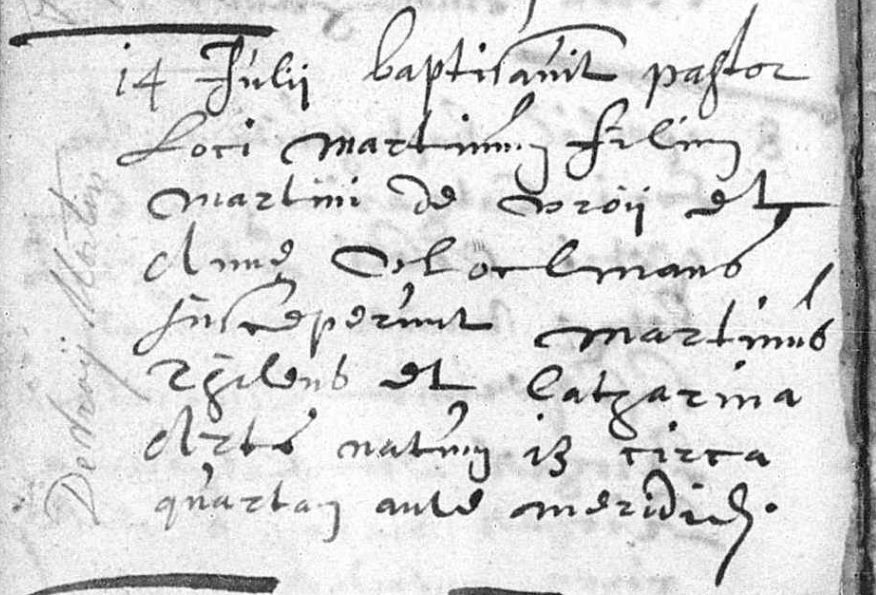 14 Julii baptisavit pastor
Loci martinum filium
martini de vroij et
Annæ
susceperunt martinus
et Catharina
natum 13 circa
quartam ante meridiem.
De vroij Martin